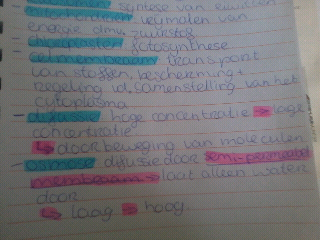 synthese van eiwitten
mitochondrien vrijmaken van
energie dmv zuurstof
- chloroplasten fotosynthese
- celmembraan transport
van stoffen, bescherming +
regeling vd samenstelling van het
cytoplasma
- diffusie: hoge concentratie → lage
concentratie
↳ door beweging van moleculen
- osmose: difusie door semi-permeabel
membraan → laat alleen water
door
↳ laag → hoog.